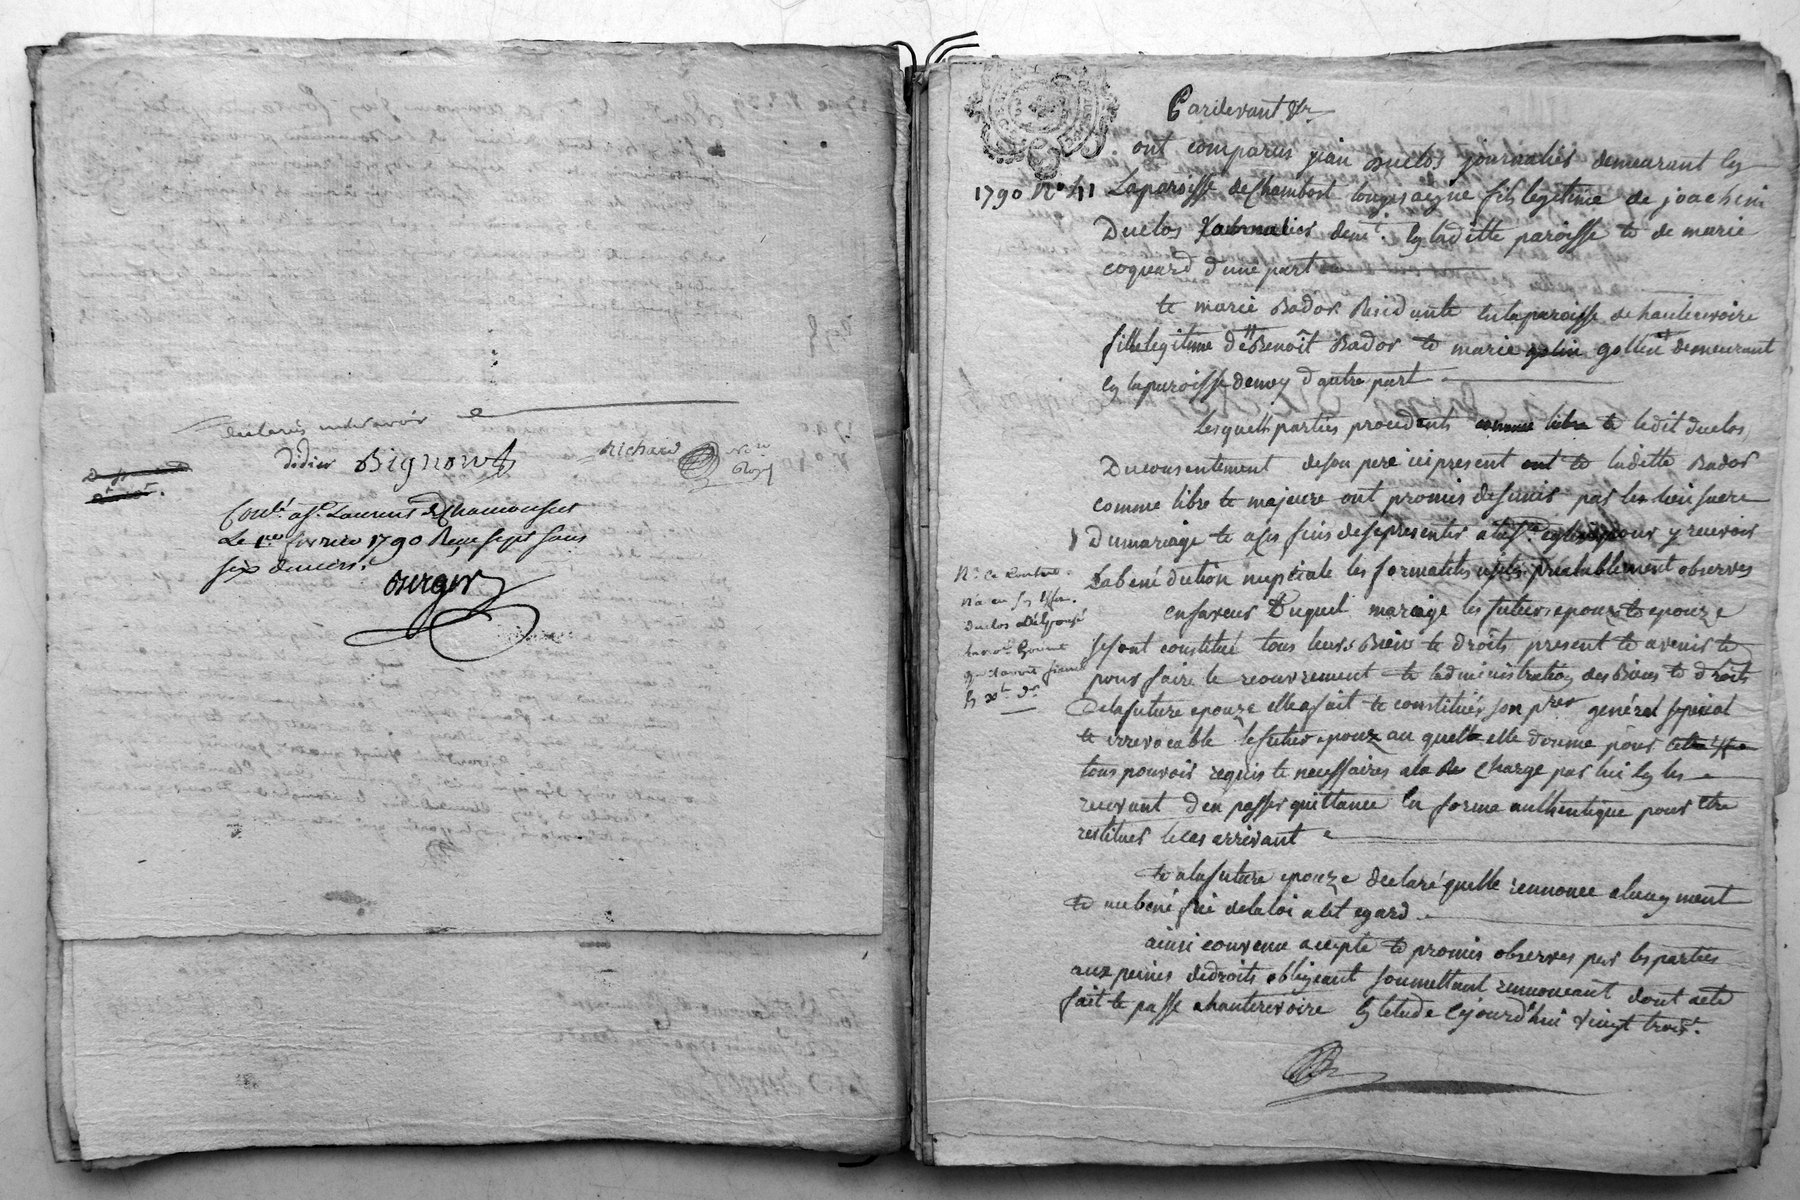 declarés ne le savoir
didier Bignon
Richard
No.re
Royal
Con.lé a St. Laurent de Chamousset
Le 1.er fevrier 1790 Reçu sept sous
six deniers.
Burger
Pardevant &c
ont comparus jean Duclos journalier demeurant en
1790 No. 41
La paroisse de Chambost longesaigne fils legitime de joachim
Duclos demt. en laditte paroisse te de marie
coquard d'une part
te marie Bador Residante en la paroisse de hauterivoire
fille legitime de Benoît Bador te marie gottin demeurant
en la paroisse de mey d'autre part
Lesquelles parties procedants te ledit duclos
Du consentement de son pere ici present te laditte Bador
comme libre te majeure ont promis de s'unir par les lien sacré
Du mariage te a ces fins de se presenter a la Ste. eglise pour y recevoir
La béné diction nuptiale les formalités prealablement observés
en faveur Duquel mariage les futurs epoux te epouze
se sont constitué tous leurs Bien te droits present te avenir te
pour faire le recouvrement te l'administration des Biens te droits
De la future epouze elle a fait te constitué son pror général special
te irrevocable le futur epoux au quel elle donne pour
tous pouvoir requis te necessaires a la charge par lui en les
recevant d'en passer quittance en forme authentique pour etre
restitués le cas arrivant
te a la future epouze declaré quelle renonce
te au béné fice de la loi a cet egard.
ainsi convenu accepté te promis observer par les parties
aux peines de droits obligeant soumettant renonceant dont acte
fait te passé a hauterivoire en l'etude cejourd'hui vingt trois.
No. ce Contrat
n'a eu
Duclos